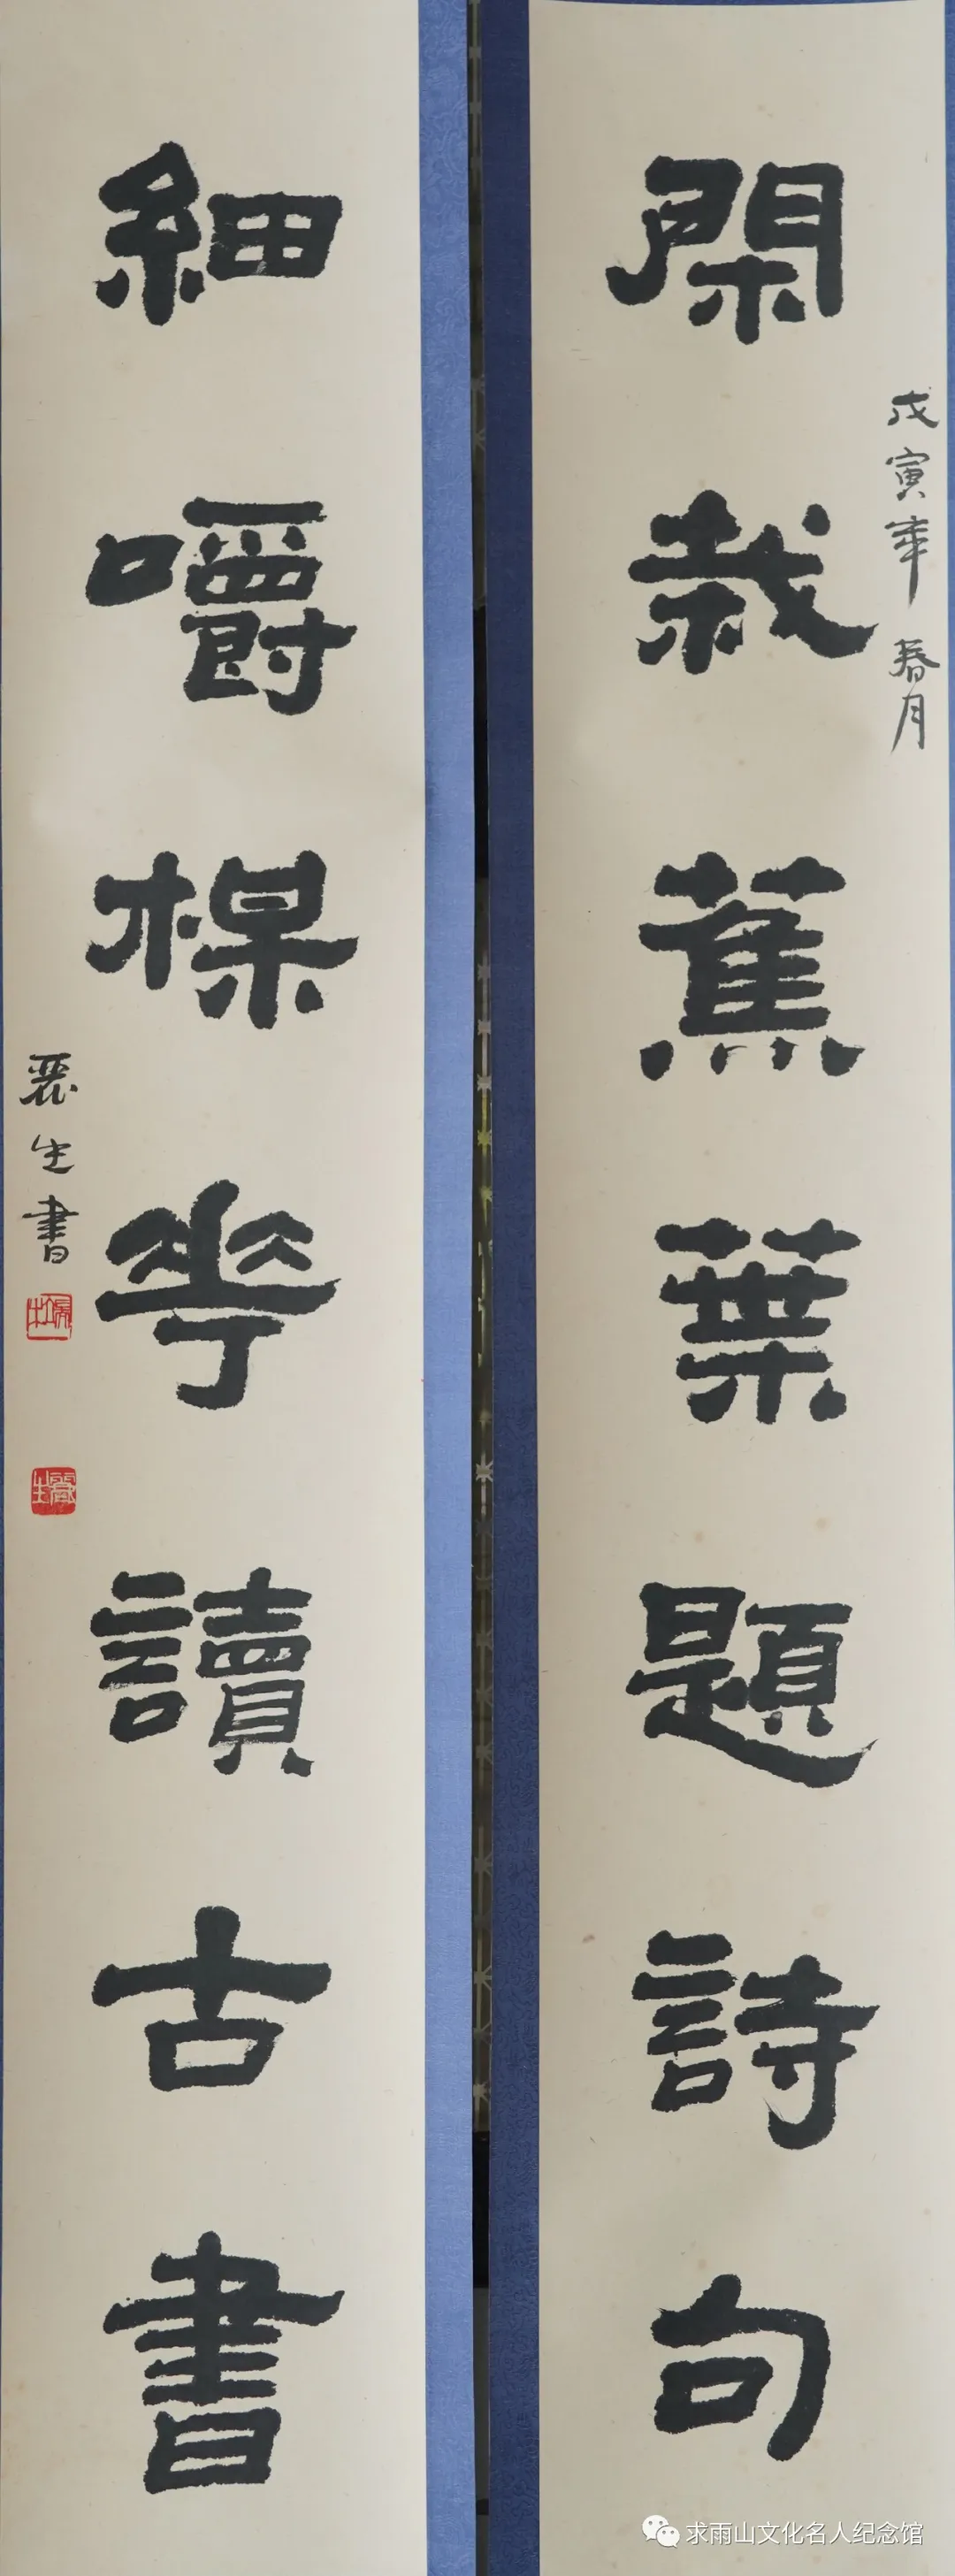 閑栽蕉葉題詩句
戊寅年 春月
細嚼楳華讀古書
生書
求雨山文化名人纪念馆